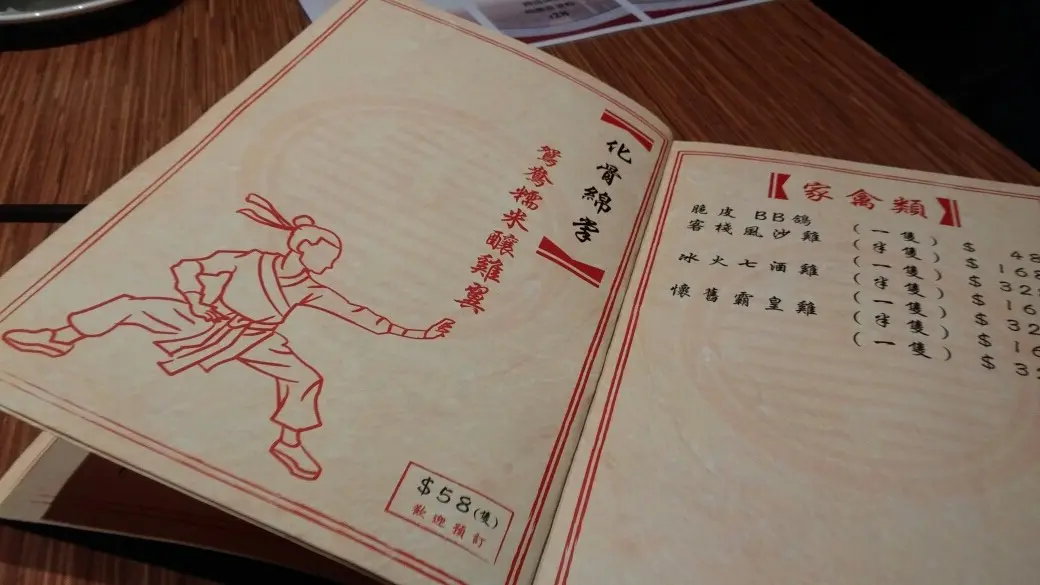 化骨綿掌
鴛鴦糯米釀雞翼
$58(隻)
歡迎預訂
家禽類
脆皮BB鴿 (一隻) $ 48
客棧風沙雞 (半隻) $ 168
(一隻) $ 32
冰火七酒雞 (半隻) $ 16
(一隻) $ 32
懷舊霸皇雞 (半隻) $ 16
(一隻) $ 32